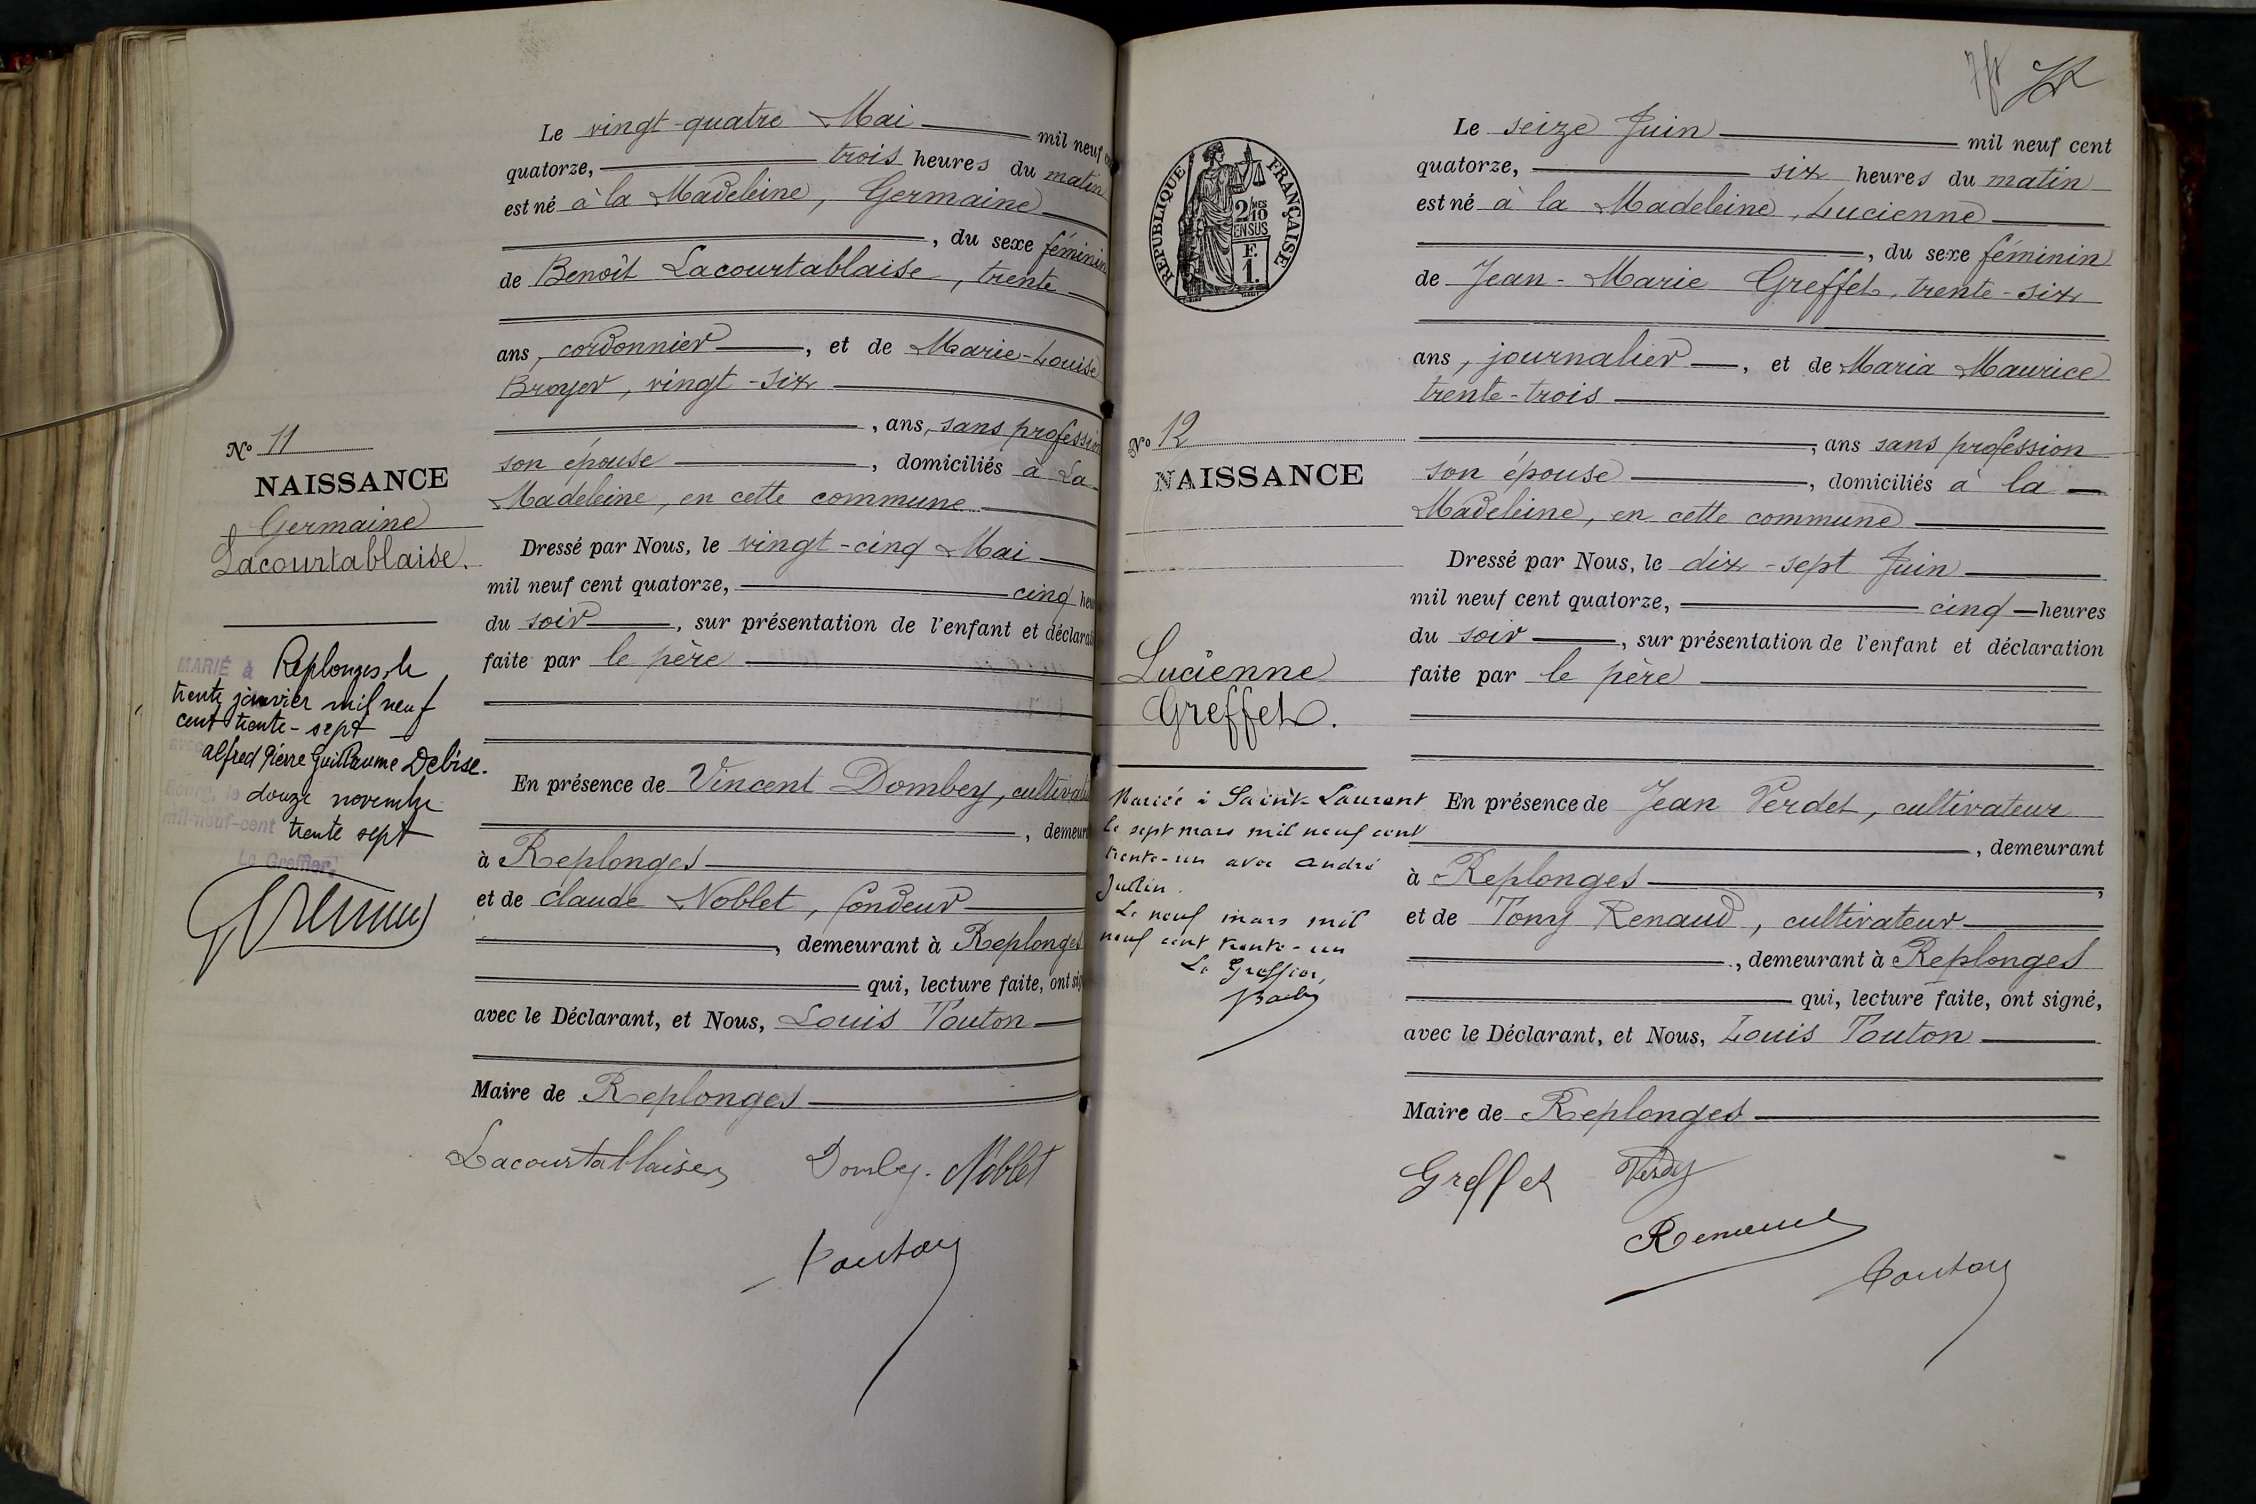 Le vingt-quatre Mai mil neuf
quatorze, trois heures du matin
est né à la Madeleine, Germaine
, du sexe féminin
de Benoît Lacourtablaise, trente
ans, cordonnier, et de Marie-Louise
Broyer, vingt-six
, ans, sans profession
son épouse, domiciliés à La
Madeleine, en cette commune
Dressé par Nous, le vingt-cinq Mai
mil neuf cent quatorze, cinq heu
du soir, sur présentation de l'enfant et déclara
faite par le père
En présence de Vincent Dombey, cultivat
, demeur
à Replonges
et de Claude Noblet, fondeur
, demeurant à Replonges
qui, lecture faite, ont sig
avec le Déclarant, et Nous, Louis Touton
Maire de Replonges
Lacourtablaise Dombey. Noblet
Touton
N° 11
NAISSANCE
Germaine
Lacourtablaise.
MARIÉ à Replonges, le
trente janvier mil neuf
cent trente-sept
avec
alfred Pierre Guillaume Debise.
Bourg, le douze novembre
mil-neuf-cent trente sept
Le Greffier,
7f
Le seize Juin mil neuf cent
quatorze, six heures du matin
est né à la Madeleine, Lucienne
, du sexe féminin
de Jean-Marie Greffet, trente-six
ans, journalier, et de Maria Maurice
trente-trois
, ans sans profession
son épouse, domiciliés à la
Madeleine, en cette commune
Dressé par Nous, le dix-sept Juin
mil neuf cent quatorze, cinq heures
du soir, sur présentation de l'enfant et déclaration
faite par le père
En présence de Jean Verdet, cultivateur
, demeurant
à Replonges,
et de Tony Renaud, cultivateur
, demeurant à Replonges
qui, lecture faite, ont signé,
avec le Déclarant, et Nous, Louis Touton
Maire de Replonges
Greffet
Renaud
Touton
RÉPUBLIQUE FRANÇAISE
2/10 MES
EN SUS
F.
1.
N° 12
NAISSANCE
Lucienne
Greffet.
Mariée à Saint-Laurent
le sept mars mil neuf cent
trente-un avec André
Jullin.
Le neuf mars mil
neuf cent trente-un
Le Greffier,